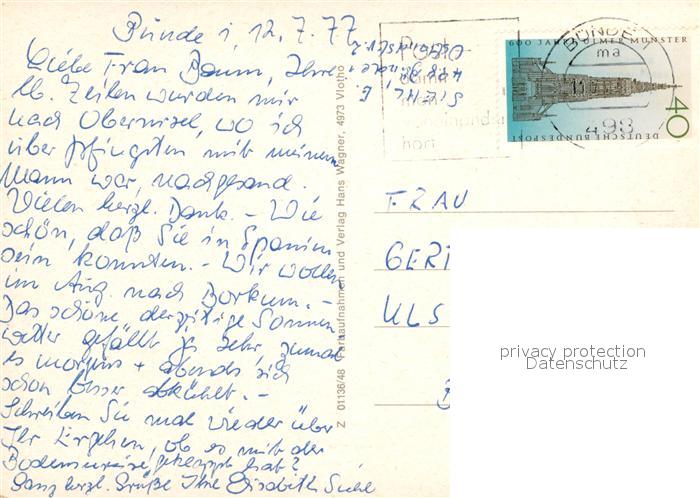 Bünde i, 12.7.77
Liebe Frau Baum, Ihre
lb. Zeilen wurden mir
nach Obernisel, wo ich
über Pfingsten mit meinem
Mann war, nachgesand.
Vielen herzl. Dank. - Wie
schön, daß Sie in Spanien
sein konnten. - Wir wollen
im Aug. nach Borkum. -
Das schöne derzeitige Sonnen
wetter gefällt ja sehr, zumal
es morgens + abends sich
schon besser abkühlt. -
Schreiben Sie mal wieder über
Ihr Ergehen, ob es mit der
geklappt hat?
Ganz herzl. Grüße Ihre Elisabeth Siehl
Z 01136/48 Farbaufnahmen und Verlag Hans Wagner, 4973 Vlotho
Post
man
hört
BÜNDE
ma
493
600 JAHRE ULMER MÜNSTER
DEUTSCHE BUNDESPOST
40
FRAU
GERT
ULS
privacy protection
Datenschutz